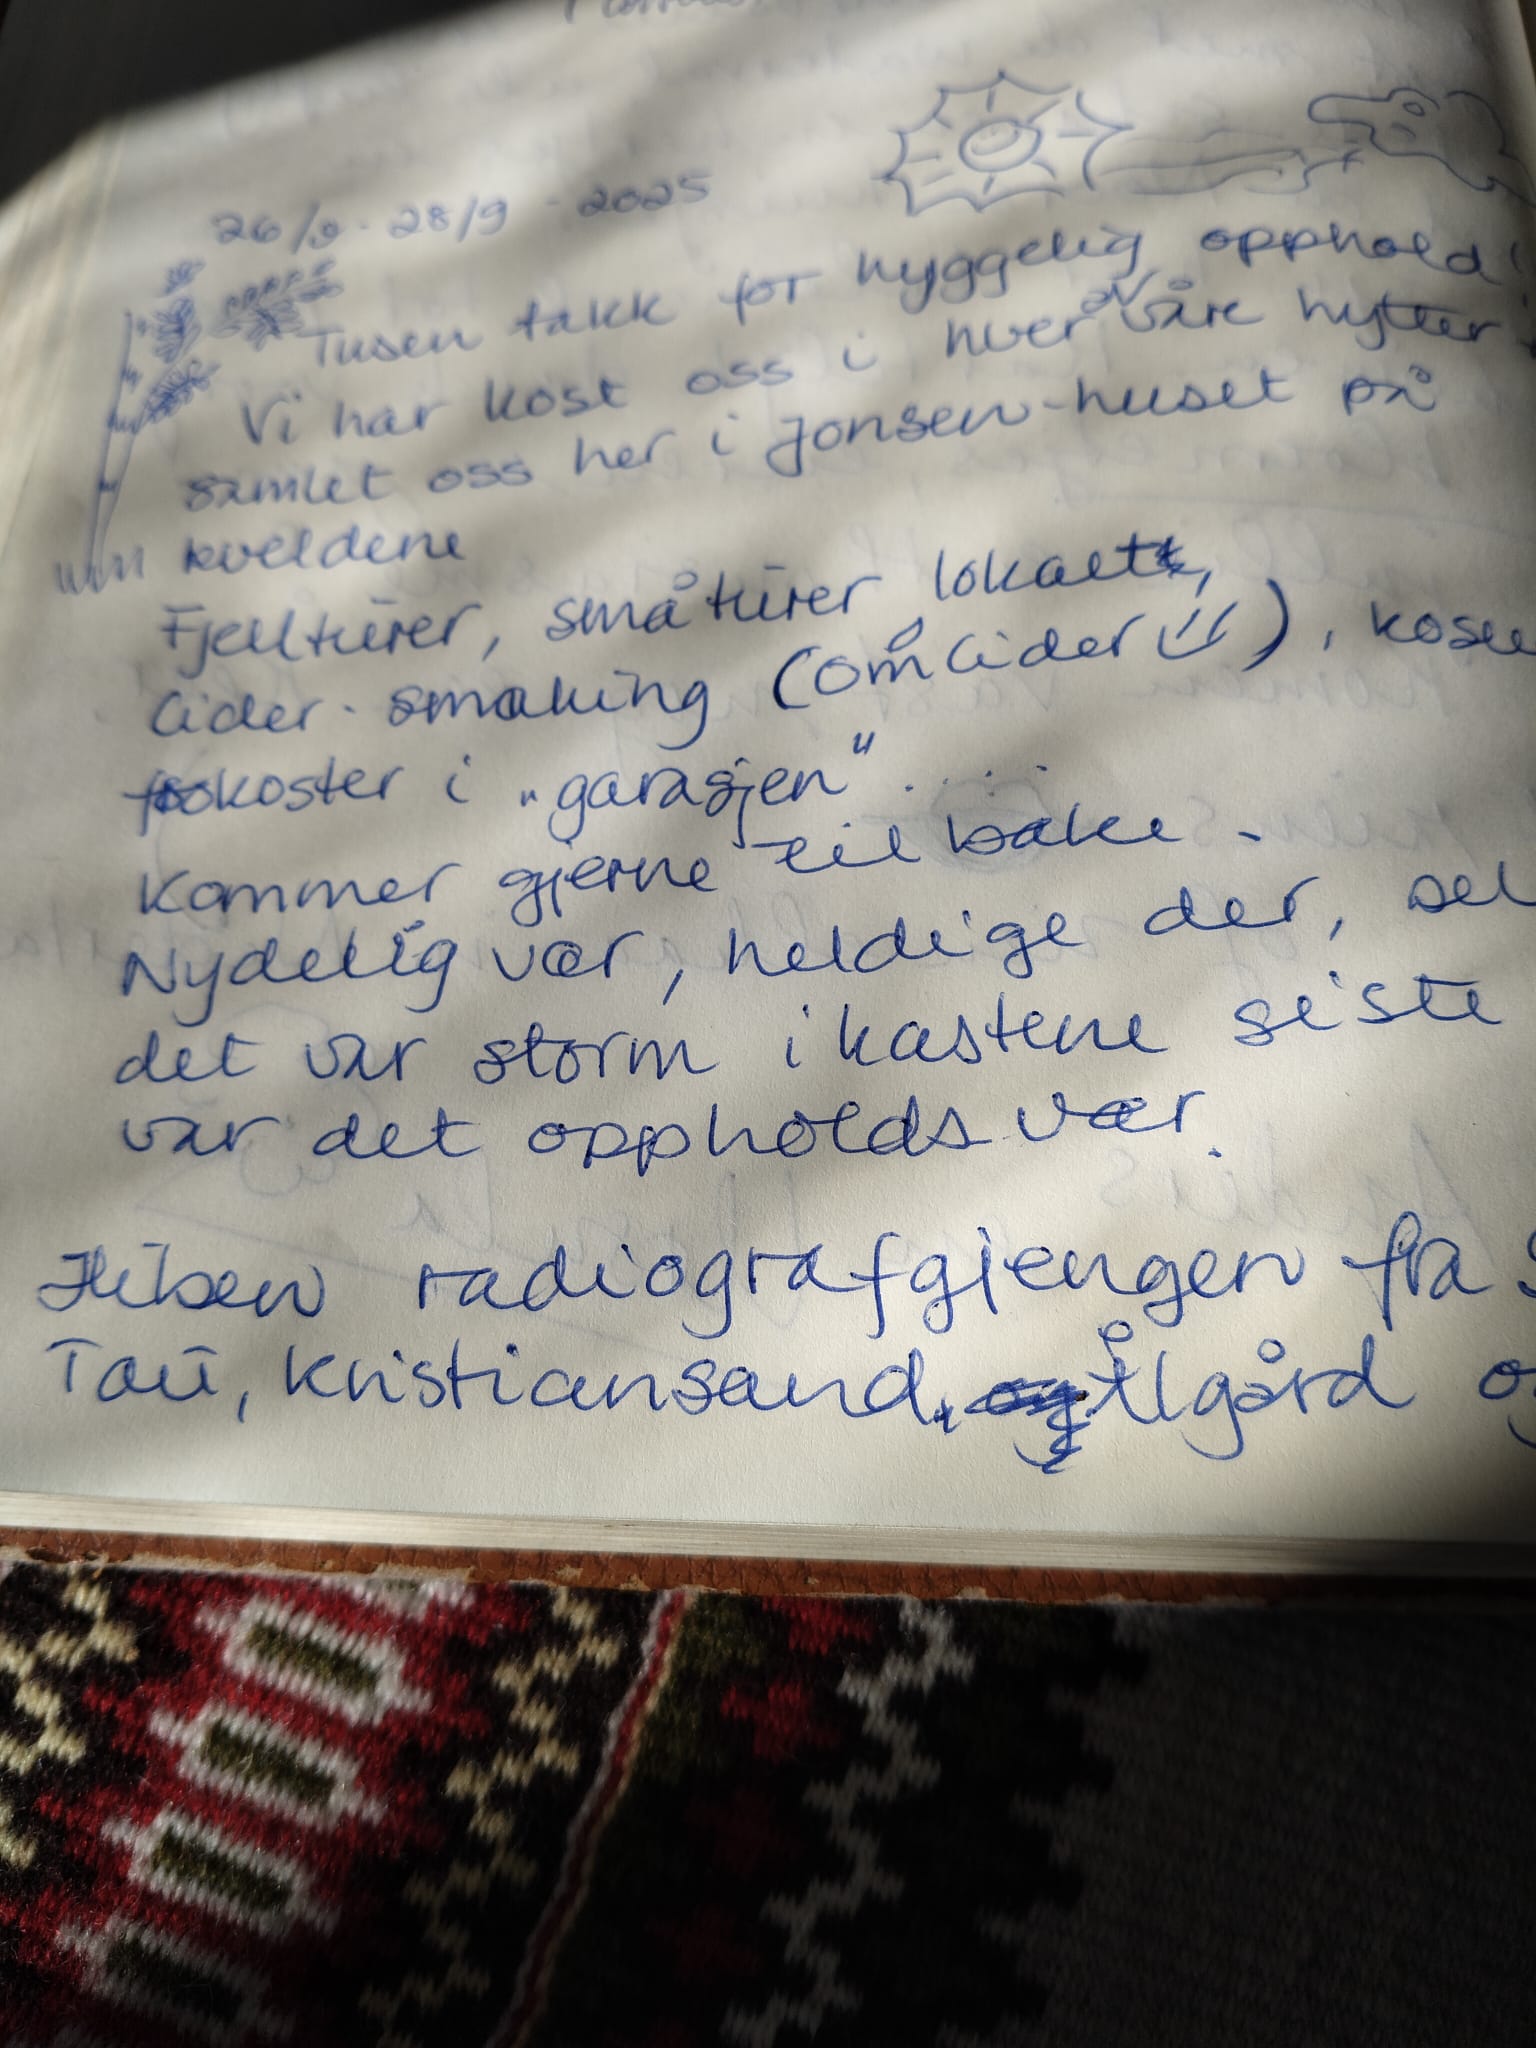 26/9 - 28/9 - 2025
Tusen takk for hyggelig opphold!
Vi har kost oss i hver av våre hytter,
samlet oss her i Jonsen-huset på
kveldene
Fjellturer, småturer lokalt,
Cider-smaking (Åmcider), kose
frokoster i "garasjen"...
Kommer gjerne tilbake.
Nydelig vær, heldige der, sel
det var storm i kastene siste
var det oppholdsvær.
Hilsen radiografgjengen fra
Tau, Kristiansand, Ålgård og